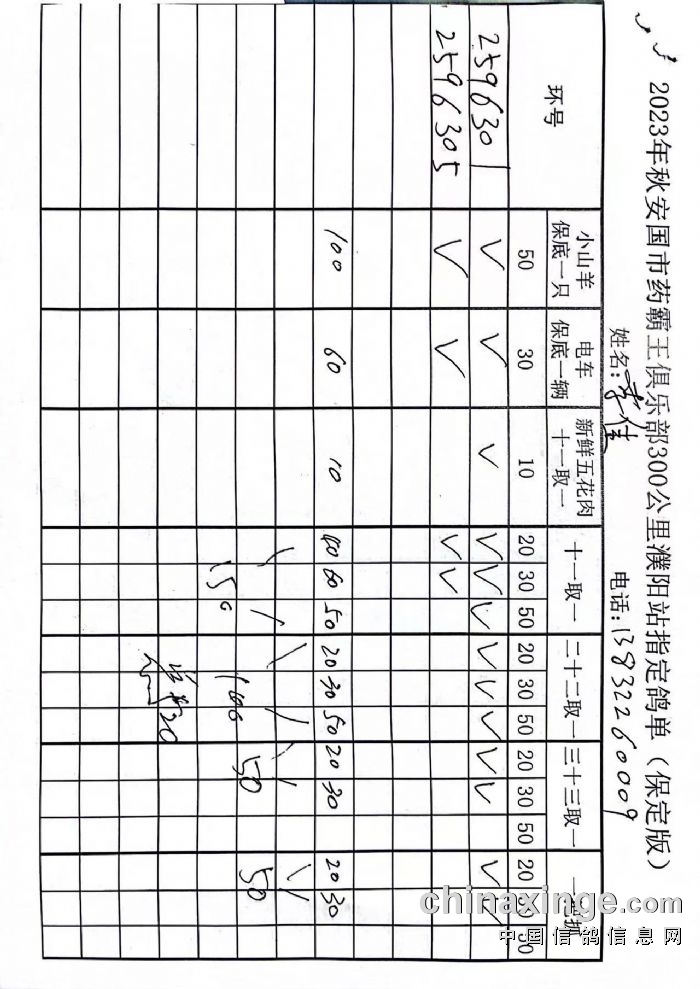 2023年秋安国市药霸王俱乐部300公里濮阳站指定鸽单（保定版）
姓名: 电话:13832260009
环号 小山羊 保底一只 电车 保底一辆 新鲜五花肉 十一取一 十一取一 二十二取一 三十三取一 一
50 30 10 20 30 50 20 30 50 20 30 50 20 30 50
259630 ✓ ✓ ✓ ✓ ✓ ✓ ✓ ✓ ✓ ✓ ✓ ✓
2596305 ✓ ✓ ✓ ✓
100 60 10 40 60 50 20 30 50 20 30 20 30
150 100 50 50
20
chinaxinge.com
中国信鸽信息网